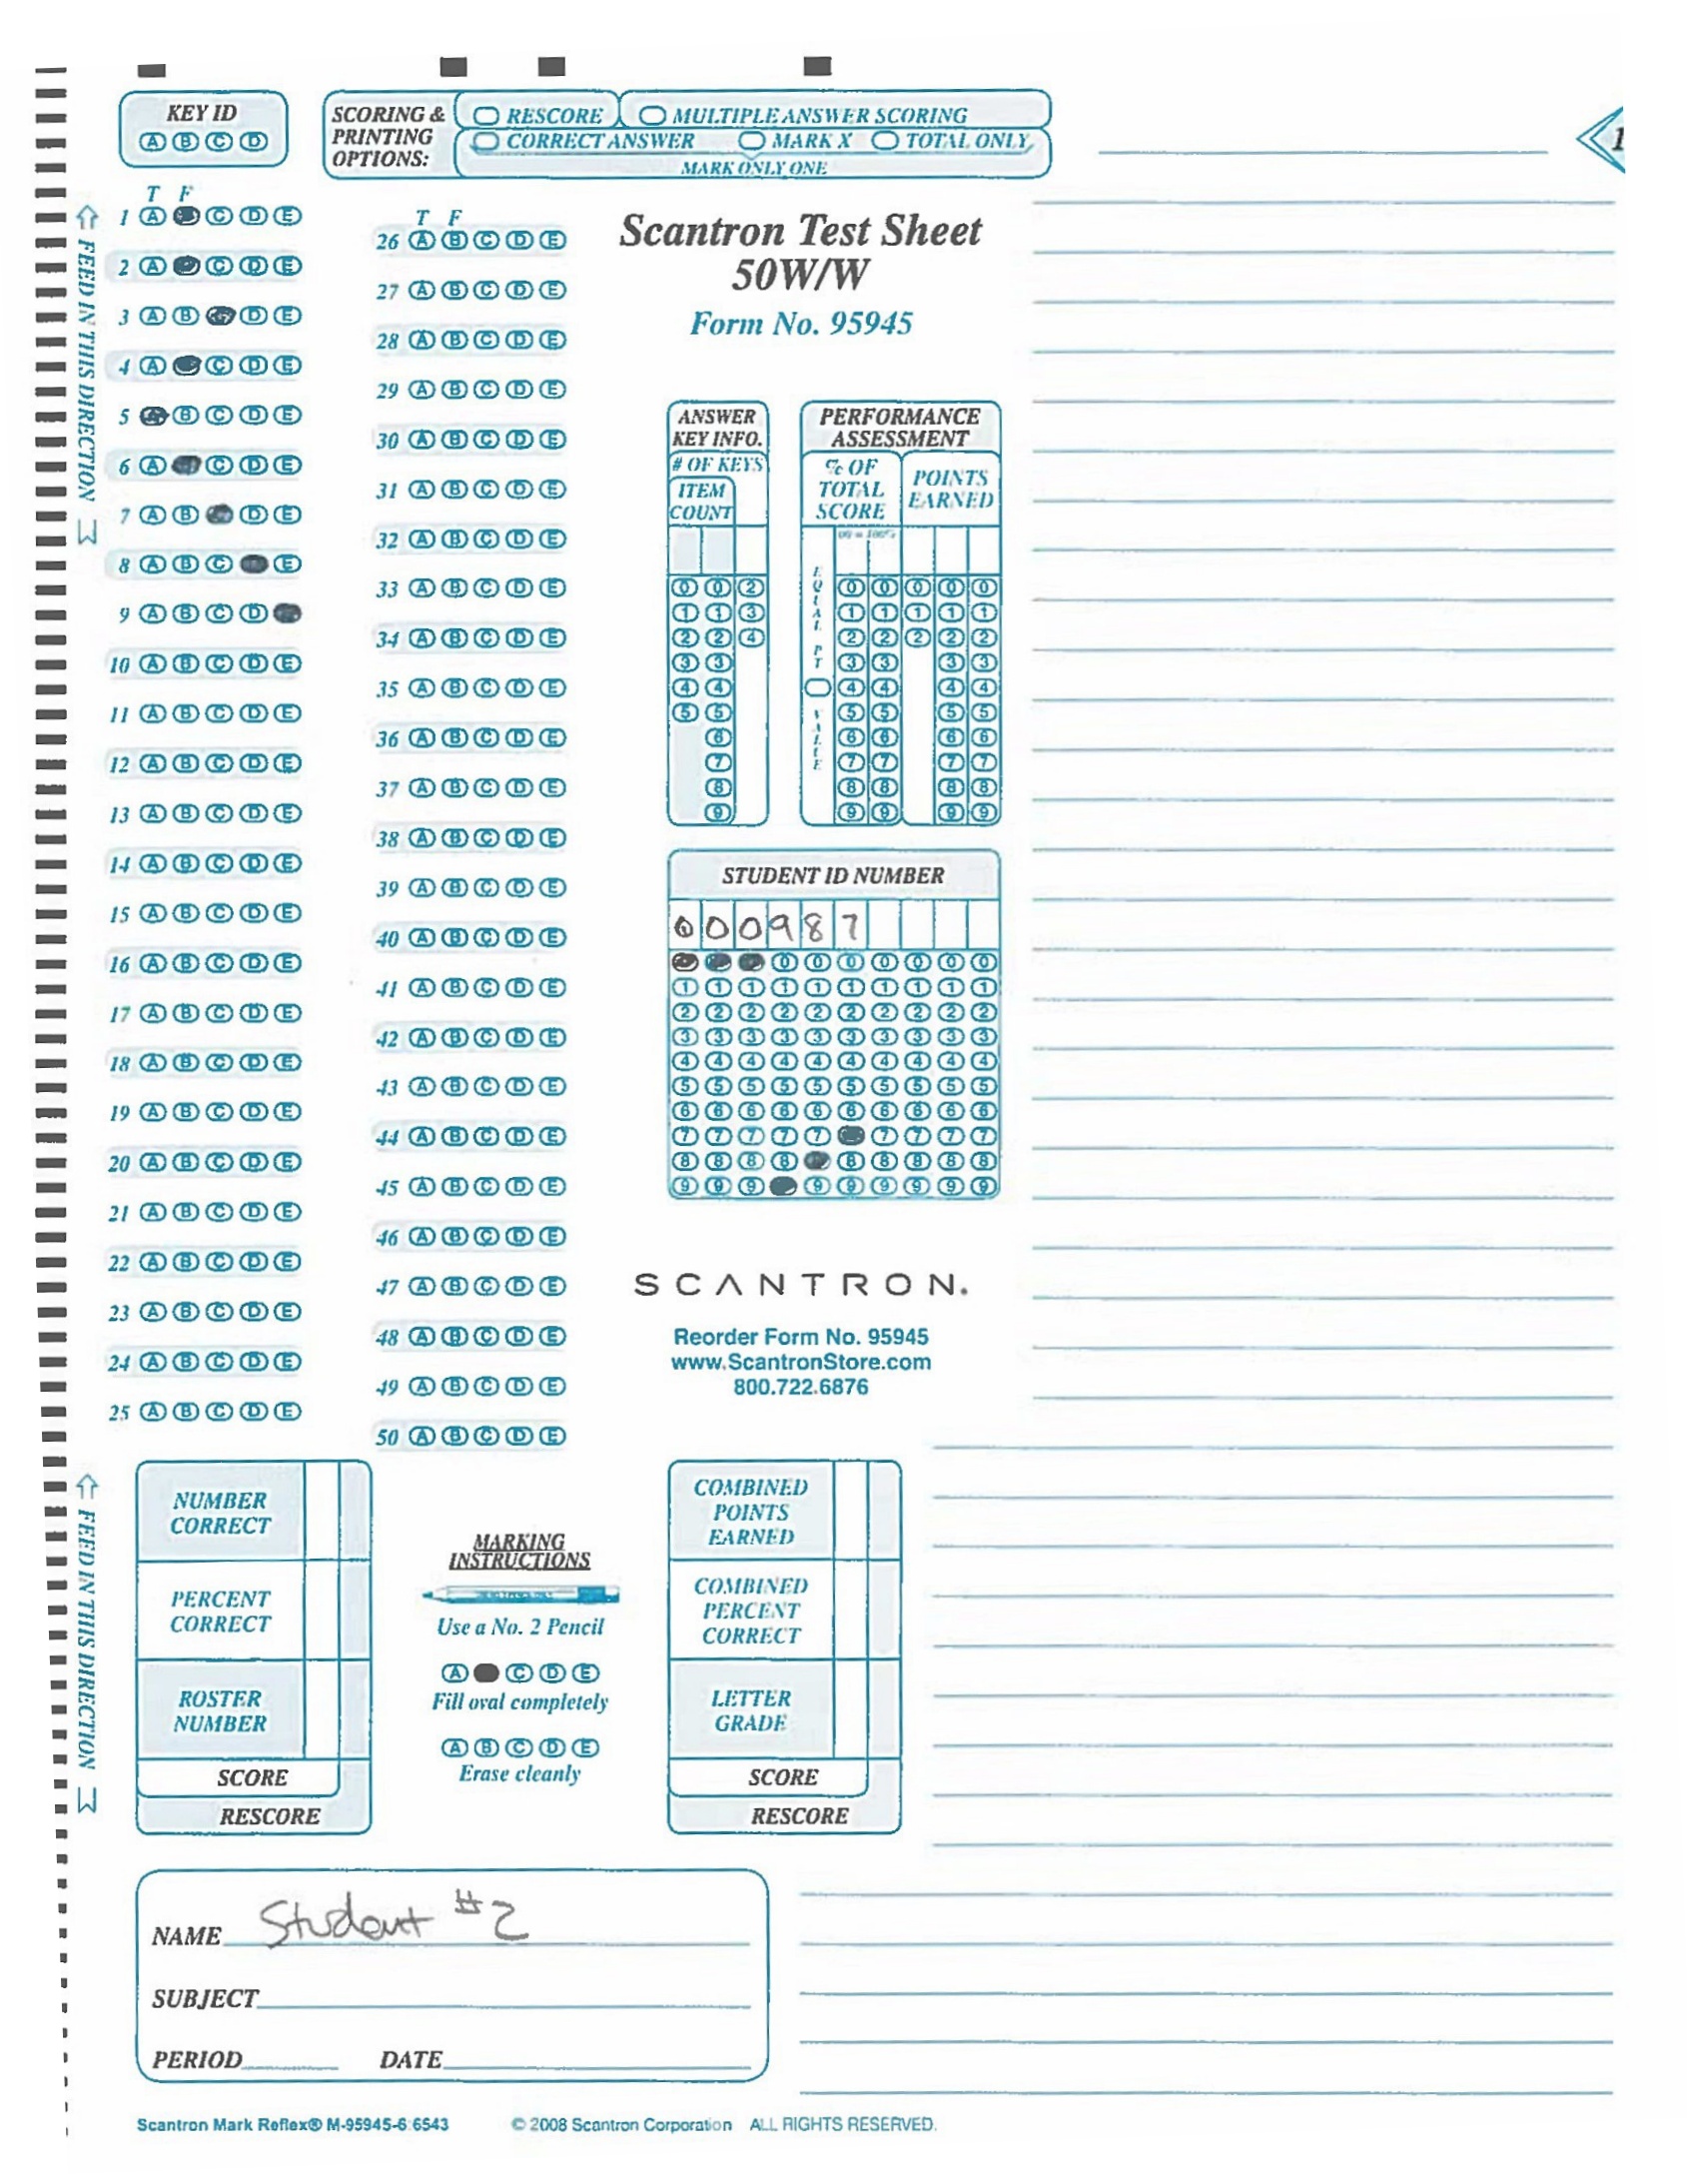 KEY ID
A B C D
SCORING & PRINTING OPTIONS:
RESCORE
MULTIPLE ANSWER SCORING
CORRECT ANSWER
MARK X
TOTAL ONLY
MARK ONLY ONE
1
FEED IN THIS DIRECTION
T F
1 A C D E
2 A C D E
3 A B D E
4 A C D E
5 B C D E
6 A C D E
7 A B D E
8 A B C E
9 A B C D
10 A B C D E
11 A B C D E
12 A B C D E
13 A B C D E
14 A B C D E
15 A B C D E
16 A B C D E
17 A B C D E
18 A B C D E
19 A B C D E
20 A B C D E
21 A B C D E
22 A B C D E
23 A B C D E
24 A B C D E
25 A B C D E
T F
26 A B C D E
27 A B C D E
28 A B C D E
29 A B C D E
30 A B C D E
31 A B C D E
32 A B C D E
33 A B C D E
34 A B C D E
35 A B C D E
36 A B C D E
37 A B C D E
38 A B C D E
39 A B C D E
40 A B C D E
41 A B C D E
42 A B C D E
43 A B C D E
44 A B C D E
45 A B C D E
46 A B C D E
47 A B C D E
48 A B C D E
49 A B C D E
50 A B C D E
Scantron Test Sheet
50W/W
Form No. 95945
ANSWER
KEY INFO.
# OF KEYS
ITEM
COUNT
0 0 2
1 1 3
2 2 4
3 3
4 4
5 5
6
7
8
9
PERFORMANCE
ASSESSMENT
% OF
TOTAL
SCORE
POINTS
EARNED
EQUAL PT VALUE
0 0 0 0 0
1 1 1 1 1
2 2 2 2 2
3 3 3 3
4 4 4 4
5 5 5 5
6 6 6 6
7 7 7 7
8 8 8 8
9 9 9 9
STUDENT ID NUMBER
0 0 0 9 8 7
0 0 0 0 0 0 0
1 1 1 1 1 1 1 1 1 1
2 2 2 2 2 2 2 2 2 2
3 3 3 3 3 3 3 3 3 3
4 4 4 4 4 4 4 4 4 4
5 5 5 5 5 5 5 5 5 5
6 6 6 6 6 6 6 6 6 6
7 7 7 7 7 7 7 7 7
8 8 8 8 8 8 8 8 8
9 9 9 9 9 9 9 9 9
SCANTRON.
Reorder Form No. 95945
www.ScantronStore.com
800.722.6876
FEED IN THIS DIRECTION
NUMBER
CORRECT
PERCENT
CORRECT
ROSTER
NUMBER
SCORE
RESCORE
MARKING
INSTRUCTIONS
Use a No. 2 Pencil
A C D E
Fill oval completely
A B C D E
Erase cleanly
COMBINED
POINTS
EARNED
COMBINED
PERCENT
CORRECT
LETTER
GRADE
SCORE
RESCORE
NAME Student #2
SUBJECT
PERIOD DATE
Scantron Mark Reflex® M-95945-6:6543 © 2008 Scantron Corporation ALL RIGHTS RESERVED.